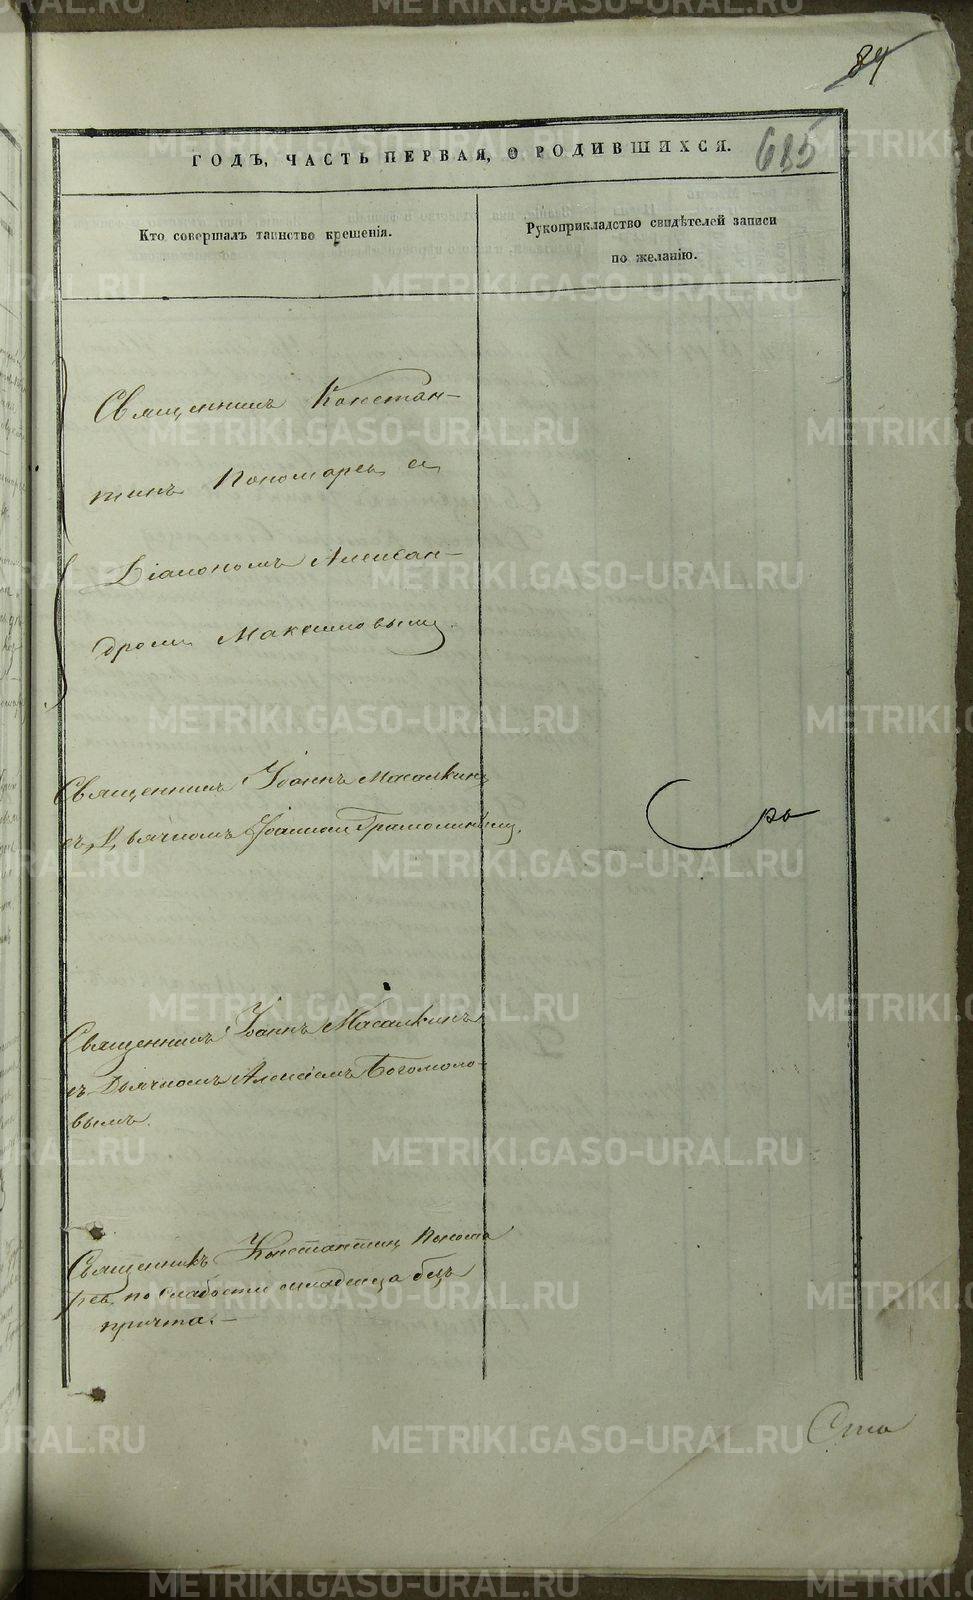 84
685
ГОДЪ, ЧАСТЬ ПЕРВАЯ, О РОДИВШИХСЯ.
Кто совершалъ таинство крещенія.
Рукоприкладство свидѣтелей записи
по желанію.
Священникъ Констан-
тинъ Пономаревъ съ
Діакономъ Алексан-
дромъ Максимовымъ.
Священникъ Іоаннъ Масалкинъ
съ Дьячкомъ Іоанномъ
Священникъ Іоаннъ Масалкинъ
съ Дьячкомъ Алексіемъ Богомоло-
вымъ.
Священникъ Константинъ Понома
ревъ по слабости младенца безъ
причта.
METRIKI.GASO-URAL.RU